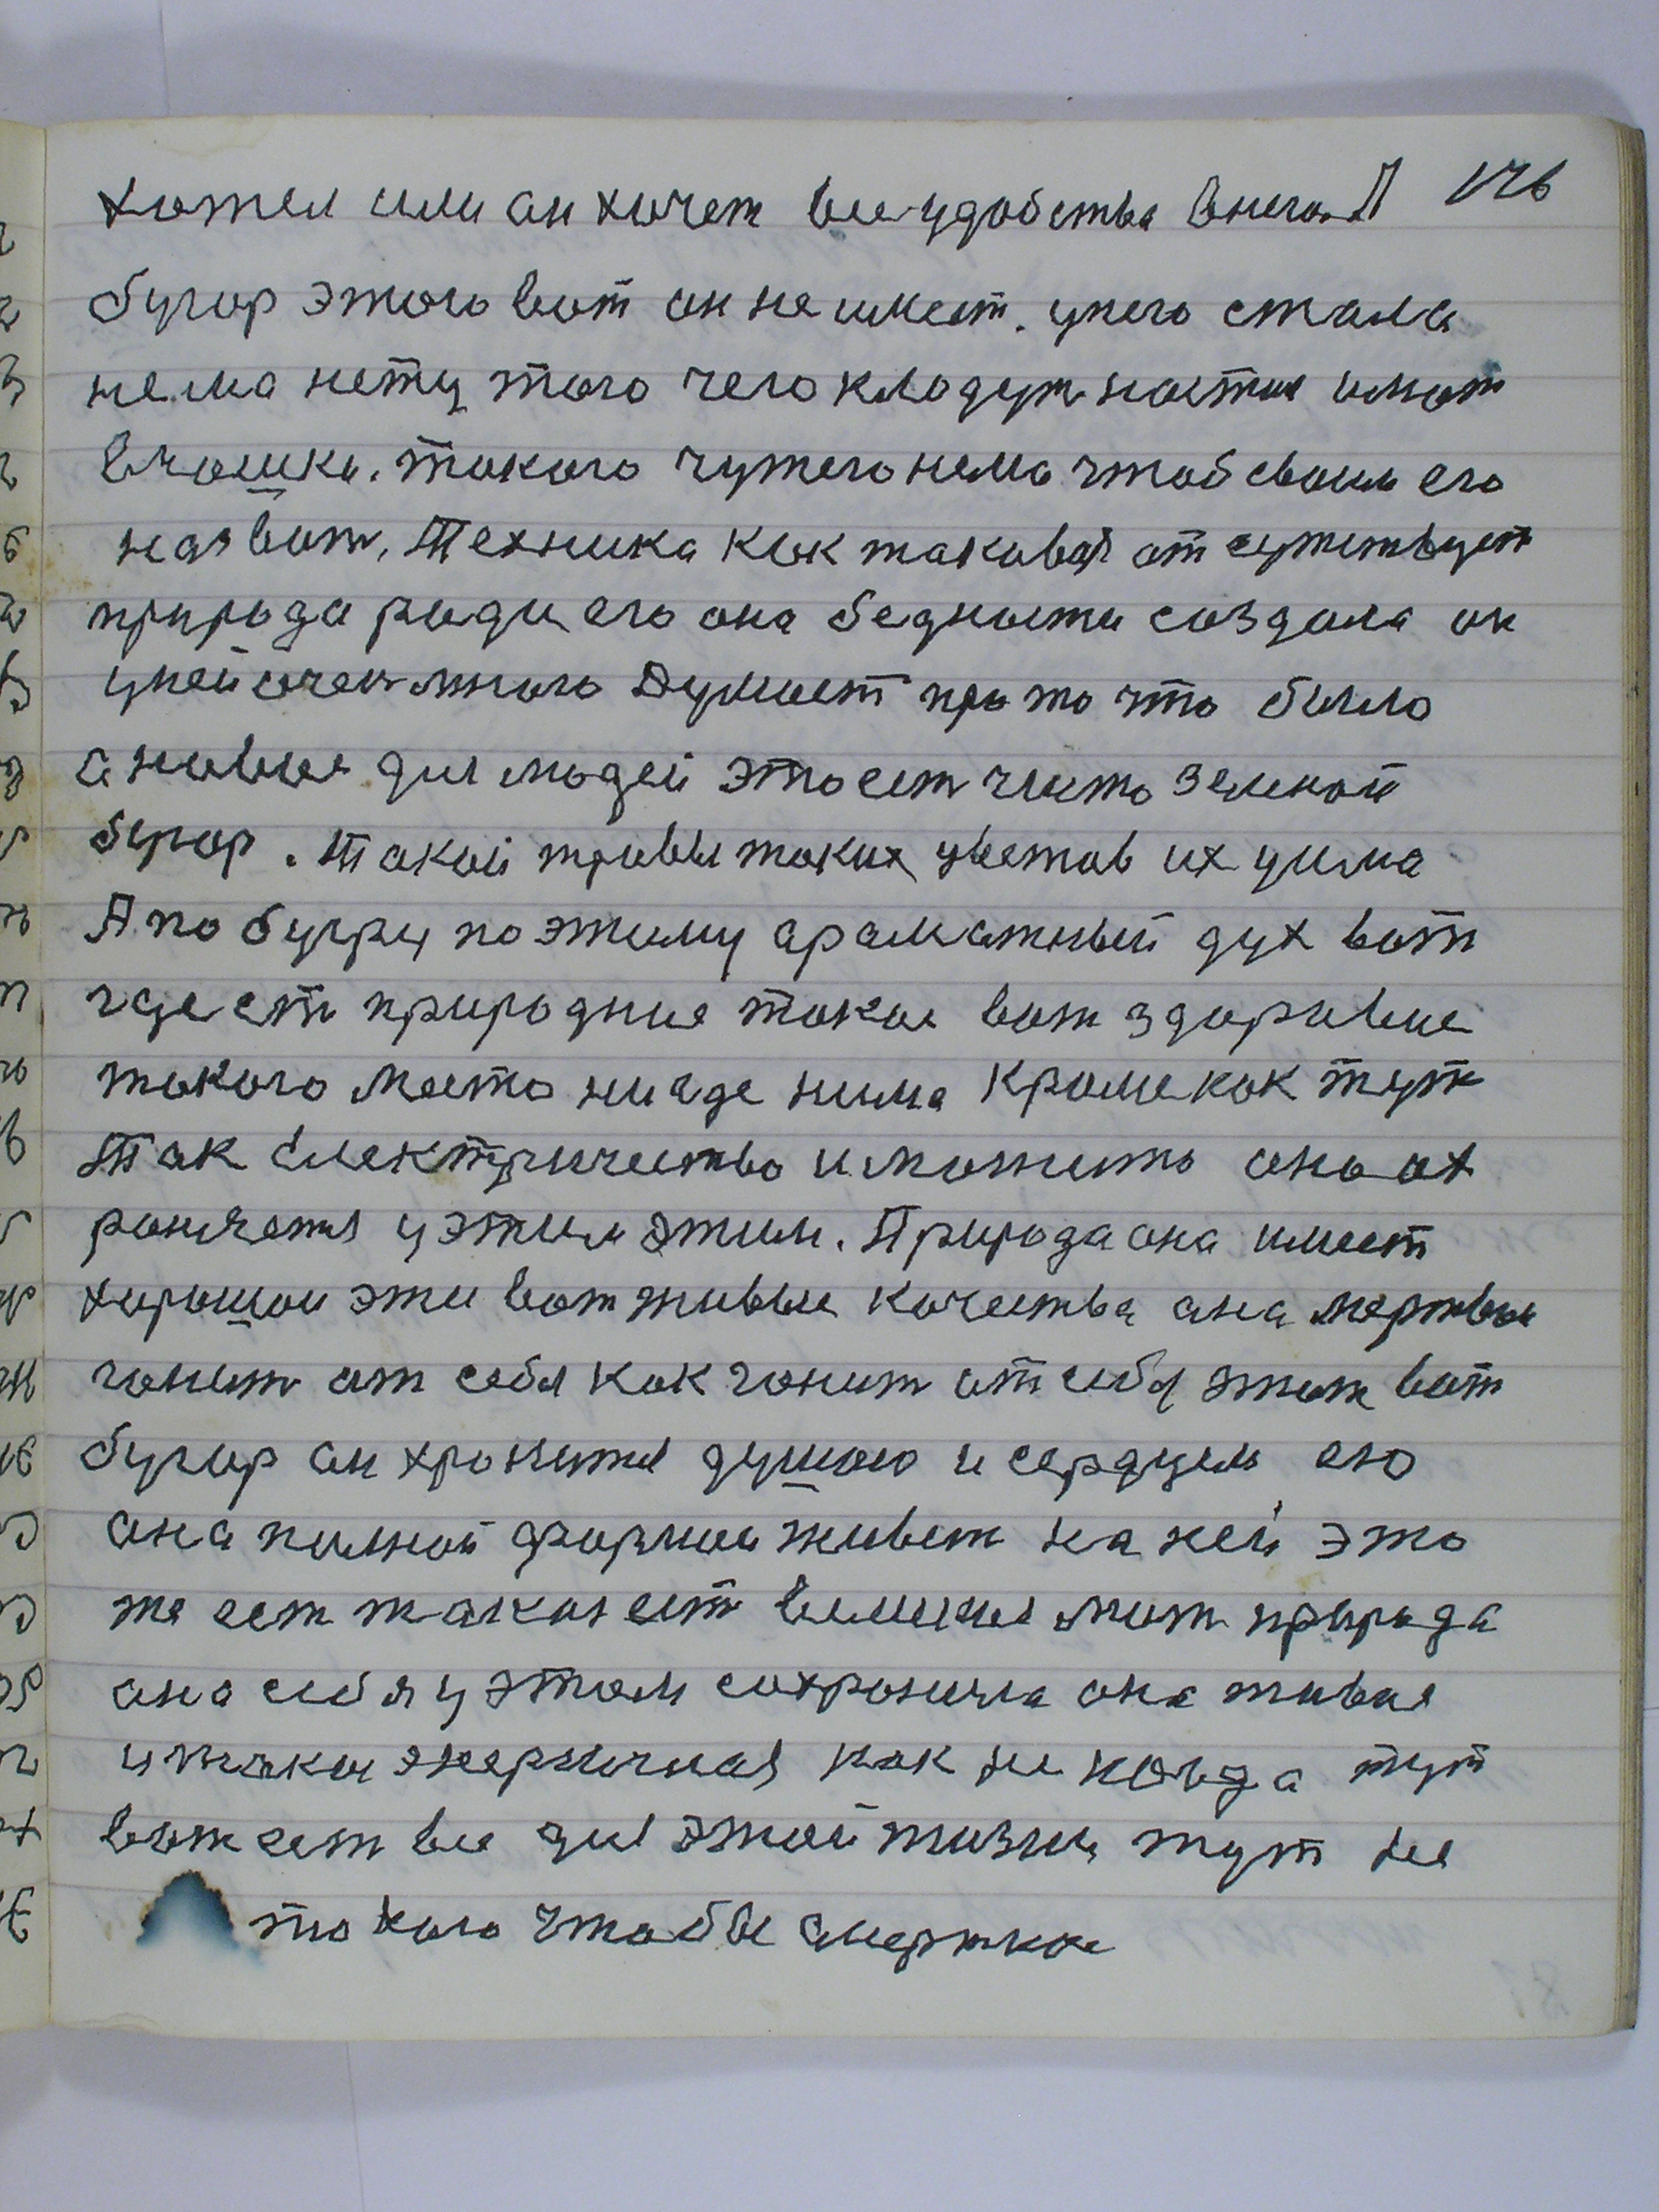 хотел или он хочет все удобства в него. А 176
бугор этого вот он не имеет. у него стала
нема нету того чего кладут насти имот
в чошки. такого чутего нема чтоб своим его
назвот. Техника как таковая отсутствует
природа ради его она бедности создала он
у ней очен много Думает про то что было
а новые для людей это ест чисто земной
бугор. Такой травы таких цветов их у има
А по бугру по этому араматный дух вот
где ест природние такие вот здоровие
такого место ни где нима кроме как тут
Так електричество и можить оно ох
ронятся у этим этим. Природа она имеет
хорошои эти вот живыи качества она мертвыи
гонит от себя как гонит от себя этот вот
бугор он хронится душою и сердцем ею
она полной формои живет на ней это
же ест такои ест великия мат природа
она себя у этом сохронила она живая
и такои энергичная как не когда тут
вот ест все для этой жизни тут не
такого чтобы смертное